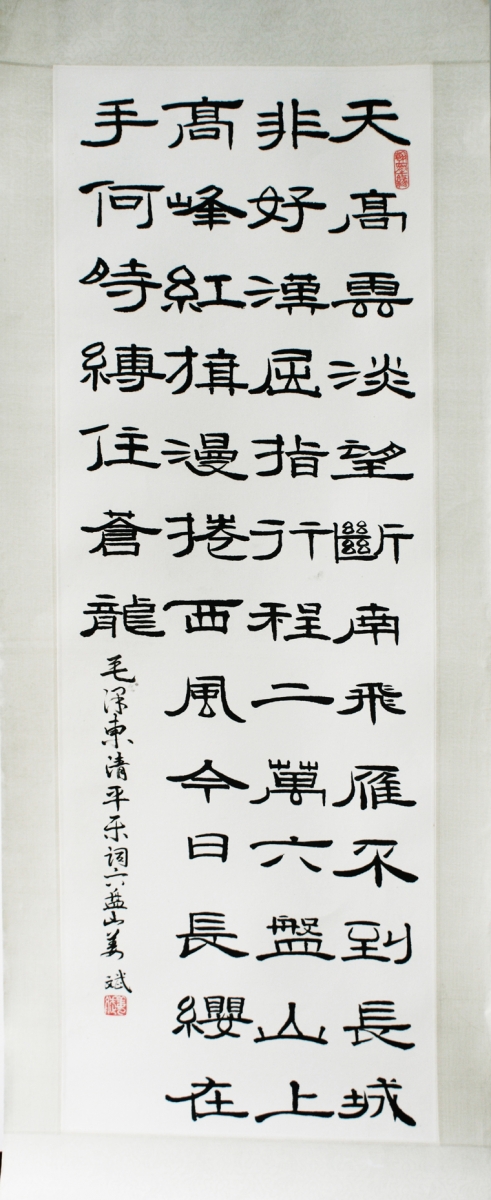 天髙雲淡望斷南飛雁不到長城
非好漢屈指行程二萬六盤山上
髙峰紅旗漫捲西風今日長纓在
手何時縛住蒼龍
毛澤東清平乐詞六盘山姜斌